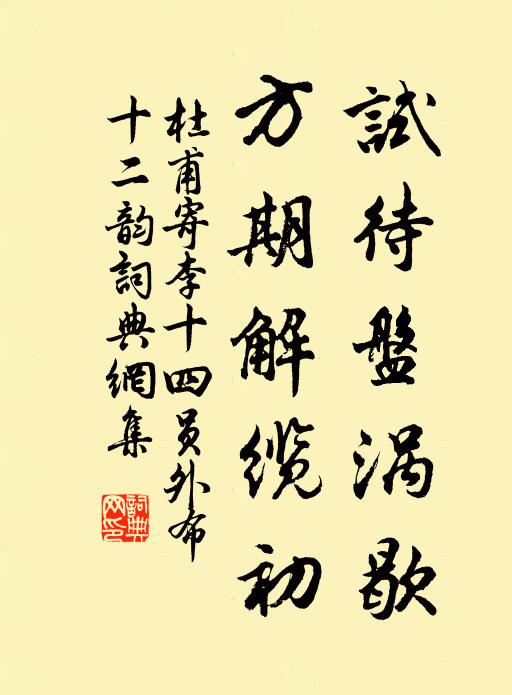 試待盤涡歇
方期解缆初
杜甫寄李十四员外布
十二韵詞典網集
詞典
网印